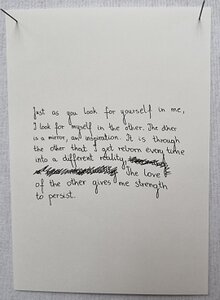 Just as you look for yourself in me,
I look for myself in the other. The other
is a mirror, an inspiration. It is through
the other that I get reborn every time
into a different reality.
The love
of the other gives me strength
to persist.